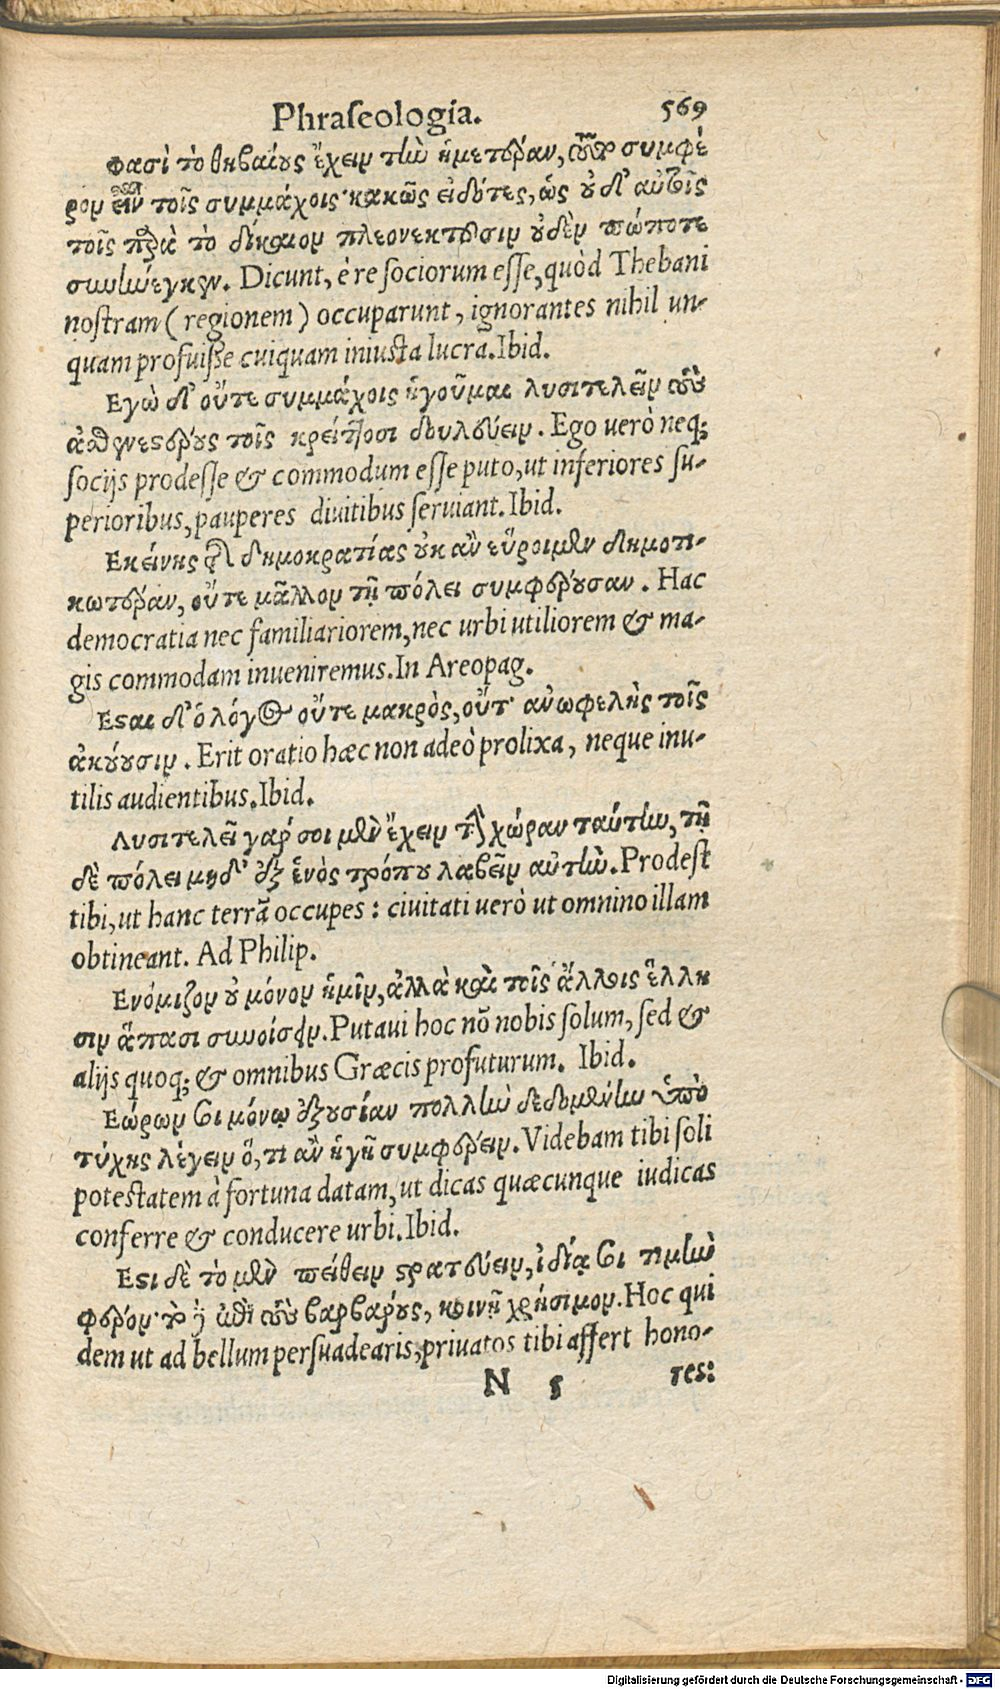 Phraſeologia. 569
φασὶ τὸ θηβαίους ἔχειν τὴν ἡμετέραν, τοῦτο συμφέ
ρον εἶναι τοῖς συμμάχοις· κακῶς εἰδότες, ὡς οὐδ' αὖθις
τοῖς παρὰ τὸ δίκαιον πλεονεκτοῦσιν οὐδὲν πώποτε
συνήνεγκεν. Dicunt, è re ſociorum eſſe, quòd Thebani
noſtram (regionem) occuparunt, ignorantes nihil un-
quam profuiſſe cuiquam iniuſta lucra. Ibid.
Εγὼ δ' οὔτε συμμάχοις ἡγοῦμαι λυσιτελεῖν τοὺς
ἀσθενεστέρους τοῖς κρείττοσι δουλεύειν. Ego uerò neq;
ſocijs prodeſſe & commodum eſſe puto, ut inferiores ſu-
perioribus, pauperes diuitibus ſeruiant. Ibid.
Εκείνης τῆς δημοκρατίας οὐκ ἂν εὕροιμεν δημοτι-
κωτέραν, οὔτε μᾶλλον τῇ πόλει συμφέρουσαν. Hac
democratia nec familiariorem, nec urbi utiliorem & ma-
gis commodam inueniremus. In Areopag.
Εσται δ' ὁ λόγος οὔτε μακρὸς, οὔτ' ἀνωφελὴς τοῖς
ἀκούουσιν. Erit oratio hæc non adeò prolixa, neque inu-
tilis audientibus. Ibid.
Λυσιτελεῖ γαρ σοι μὲν ἔχειν τὴν χώραν ταύτην, τῇ
δὲ πόλει μηδ' ἐξ ἑνὸς τρόπου λαβεῖν αὐτὴν. Prodeſt
tibi, ut hanc terrã occupes : ciuitati uerò ut omnino illam
obtineant. Ad Philip.
Ενόμιζον οὐ μόνον ἡμῖν, ἀλλὰ καὶ τοῖς ἄλλοις ἕλλη
σιν ἅπασι συνοίσειν. Putaui hoc nõ nobis ſolum, ſed &
alijs quoq; & omnibus Græcis profuturum. Ibid.
Εώρων σοι μόνῳ ἐξουσίαν πολλὴν δεδομένην ὑπὸ
τύχης λέγειν ὅ, τι ἂν ἡγῇ συμφέρειν. Videbam tibi ſoli
poteſtatem à fortuna datam, ut dicas quæcunque iudicas
conferre & conducere urbi. Ibid.
Εστι δὲ τὸ μὲν πείθειν στρατεύειν, ἰδίᾳ σοι τιμὴν
φέρον· τὸ δὲ ἐπὶ τοὺς βαρβάρους, κοινῇ χρήσιμον. Hoc qui
dem ut ad bellum perſuadearis, priuatos tibi affert hono-
N 5 res:
Digitalisierung gefördert durch die Deutsche Forschungsgemeinschaft - DFG